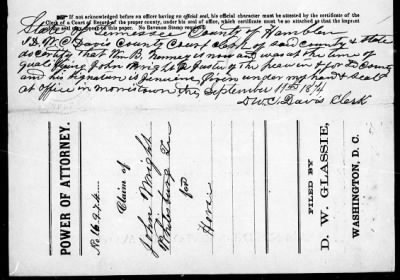 ☞ If not acknowledged before an officer having an official seal, his official character must be attested by the certificate of the
Clerk of a Court of Record of the proper county, under his seal of office, which certificate must be so attached as that the imprint
of the seal will cover a part of this paper. No Revenue Stamp required.
State Tennessee County of Hamblen
I D. W. C. Davis County Court Clerk of said County & State
do certify that Wm B. Nenney is now and was at the time of
qualifying John Wright a Justice of the peace in & for Sd County
and his signature is genuine given under my hand & Seal
at office in Morristown this September 11th 1874
D W. C. Davis Clerk
POWER OF ATTORNEY.
No. 16274
Claim of
John Wright
Whitesburg Tn
for
Horse
FILED BY
D. W. GLASSIE,
WASHINGTON, D. C.